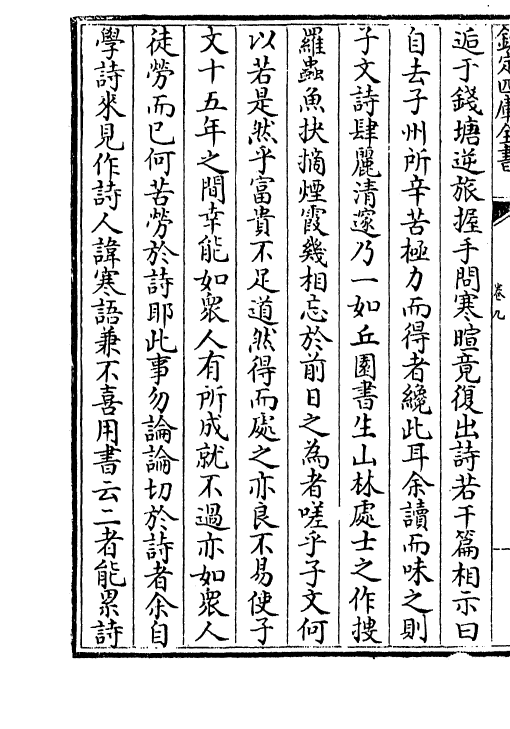 欽定四庫全書
卷九
逅于錢塘逆旅握手問寒暄竟復出詩若干篇相示曰
自去子州所辛苦極力而得者纔此耳余讀而味之則
子文詩肆麗清邃乃一如丘園書生山林處士之作搜
羅蟲魚抉摘煙霞幾相忘於前日之為者嗟乎子文何
以若是然乎富貴不足道然得而處之亦良不易使子
文十五年之間幸能如衆人有所成就不過亦如衆人
徒勞而已何苦勞於詩耶此事勿論論切於詩者余自
學詩來見作詩人諱寒語兼不喜用書云二者能累詩